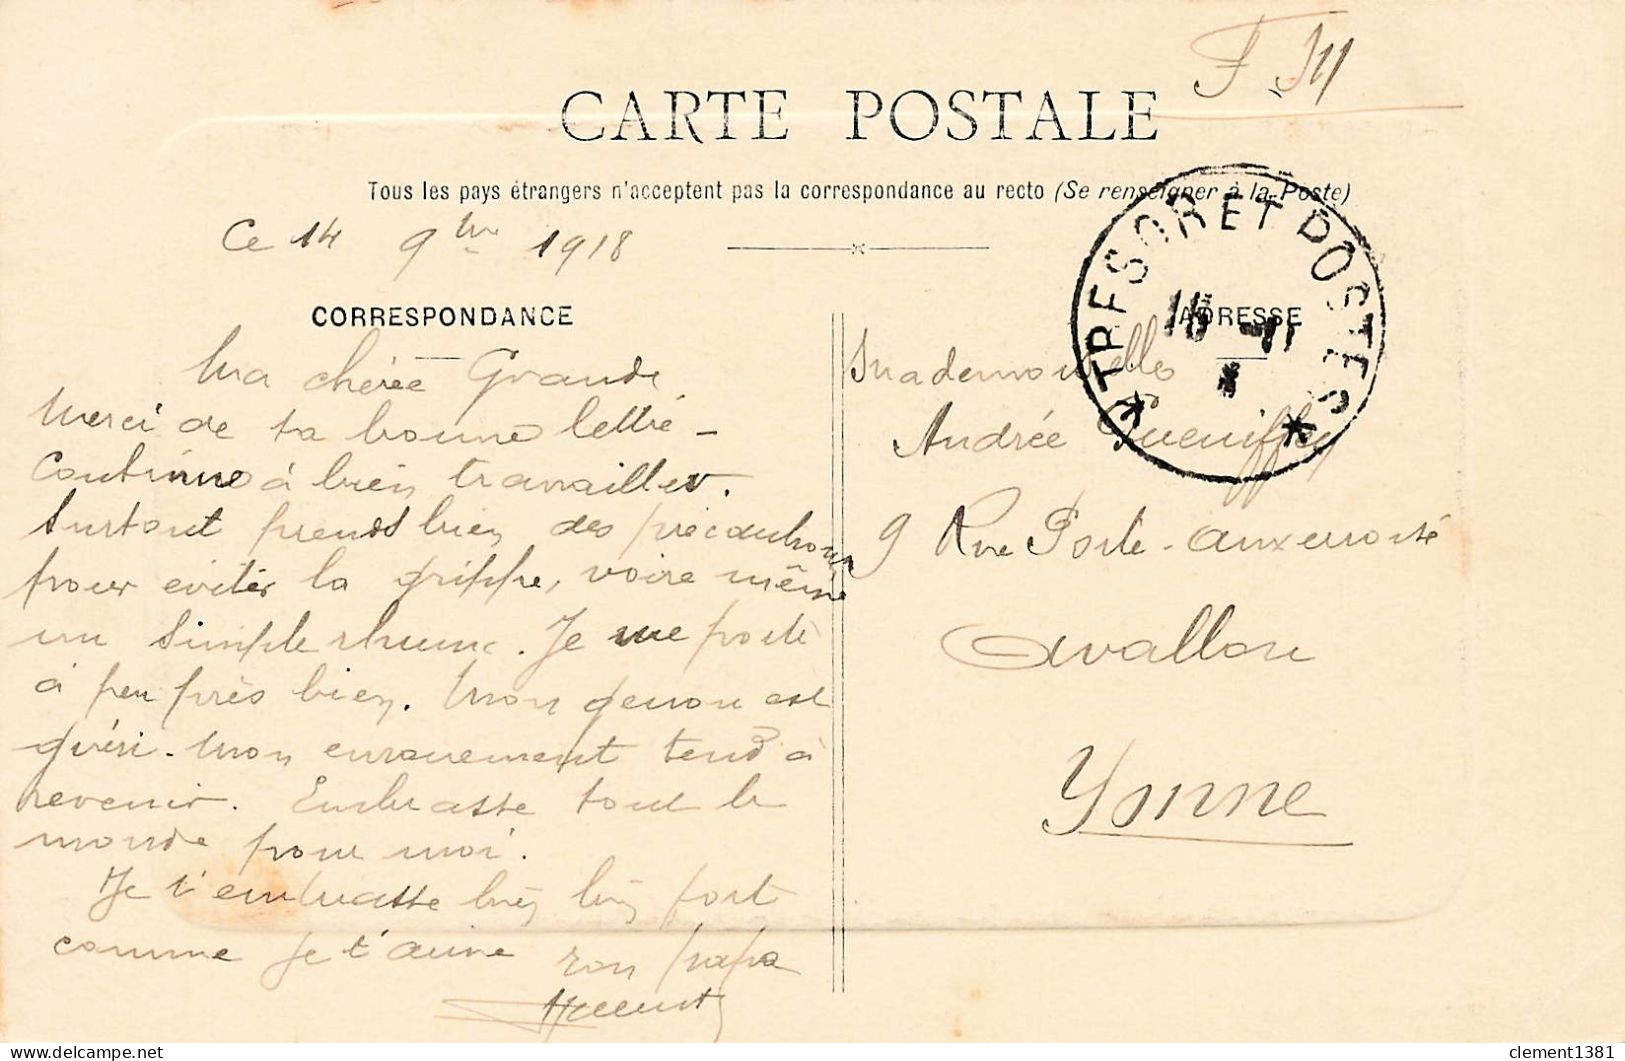 F. M
CARTE POSTALE
Tous les pays étrangers n'acceptent pas la correspondance au recto (Se renseigner à la Poste)
Ce 14 9bre 1918
CORRESPONDANCE
Ma chérie Grande
Merci de ta bonne lettre -
Continue à bien travailler.
Surtout prends bien des précautions
pour eviter la grippe, voire même
un simple rhume. Je me porte
à peu près bien. Mon genou est
guéri - Mon enrouement tend à
revenir. Embrasse tout le
monde pour moi.
Je t'embrasse bien bien fort
comme je t'aime ton papa
TRESOR ET POSTES
ADRESSE
Mademoiselle
Andrée Gueniffey
9 Rue Porte-auxerroise
Avallon
Yonne
clement1381